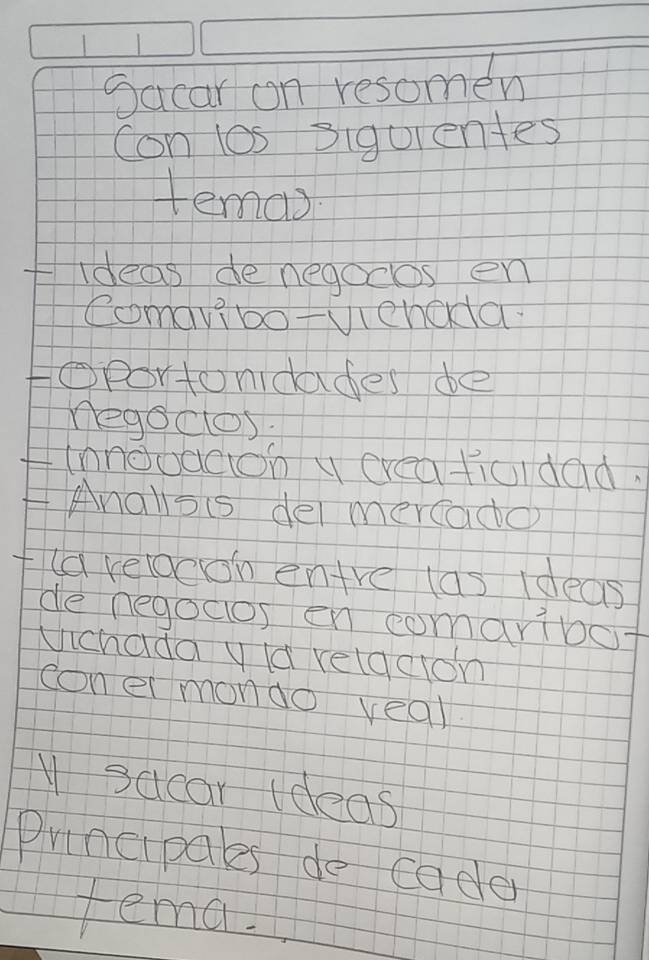 Sacar on resomén
con los siguientes
temas.
- Ideas de negocios en
Comaribo-vichada.
- Oportonidades de
negocios.
- Innovación y creatividad.
- Analisis del mercado
- la relación entre las ideas
de negocios en comaribo-
vichada y la relación
con el mondo real.
y sacar ideas
Principales de cada
tema..